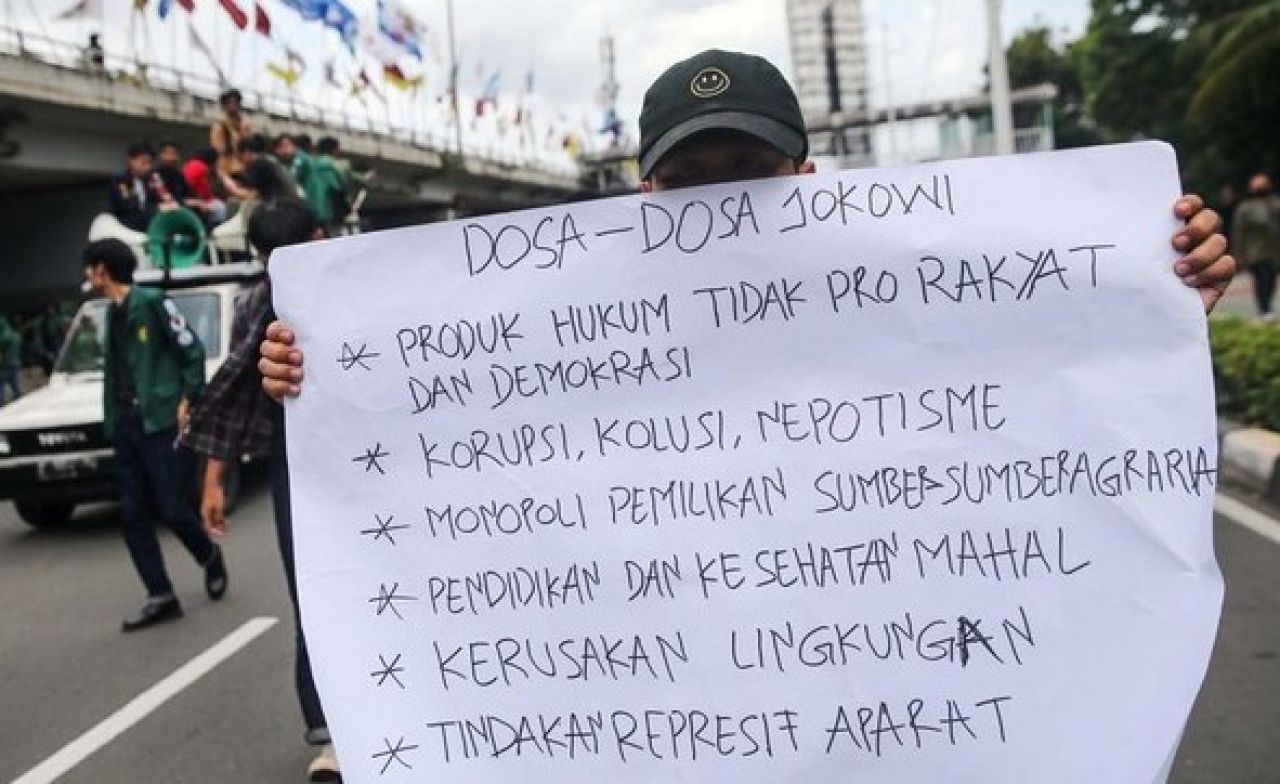 DOSA-DOSA JOKOWI
* PRODUK HUKUM TIDAK PRO RAKYAT
DAN DEMOKRASI
* KORUPSI, KOLUSI, NEPOTISME
* MONOPOLI PEMILIKAN SUMBER-SUMBER AGRARIA
* PENDIDIKAN DAN KESEHATAN MAHAL
* KERUSAKAN LINGKUNGAN
* TINDAKAN REPRESIF APARAT